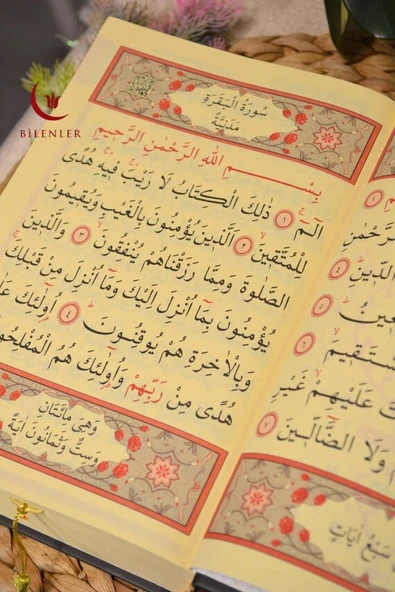 BİLENLER
سُورَةُ الْبَقَرَةِ
مَدَنِيَّةٌ
بِسْــمِ اللّٰهِ الرَّحْمٰنِ الرَّحِيمِ
الٓمٓ ١ ذٰلِكَ الْكِتَابُ لَا رَيْبَ فِيهِ هُدًى
لِلْمُتَّقِينَ ٢ اَلَّذِينَ يُؤْمِنُونَ بِالْغَيْبِ وَيُقِيمُونَ
الصَّلٰوةَ وَمِمَّا رَزَقْنَاهُمْ يُنْفِقُونَ ٣ وَالَّذِينَ
يُؤْمِنُونَ بِمَٓا اُنْزِلَ اِلَيْكَ وَمَٓا اُنْزِلَ مِنْ قَبْلِكَ
وَبِالْاٰخِرَةِ هُمْ يُوقِنُونَ ٤ اُو۬لٰٓئِكَ
هُدًى مِنْ رَبِّهِمْ وَاُو۬لٰٓئِكَ هُمُ
وَهِيَ مِائَتَانِ
وَسِتٌّ وَثَمَانُونَ اٰيَةً
١
الدِّينِ ٤
٥
٦
عَلَيْهِمْ غَيْرِ
وَلَا الضَّٓالِّينَ ٧
سَبْعُ اٰيَاتٍ